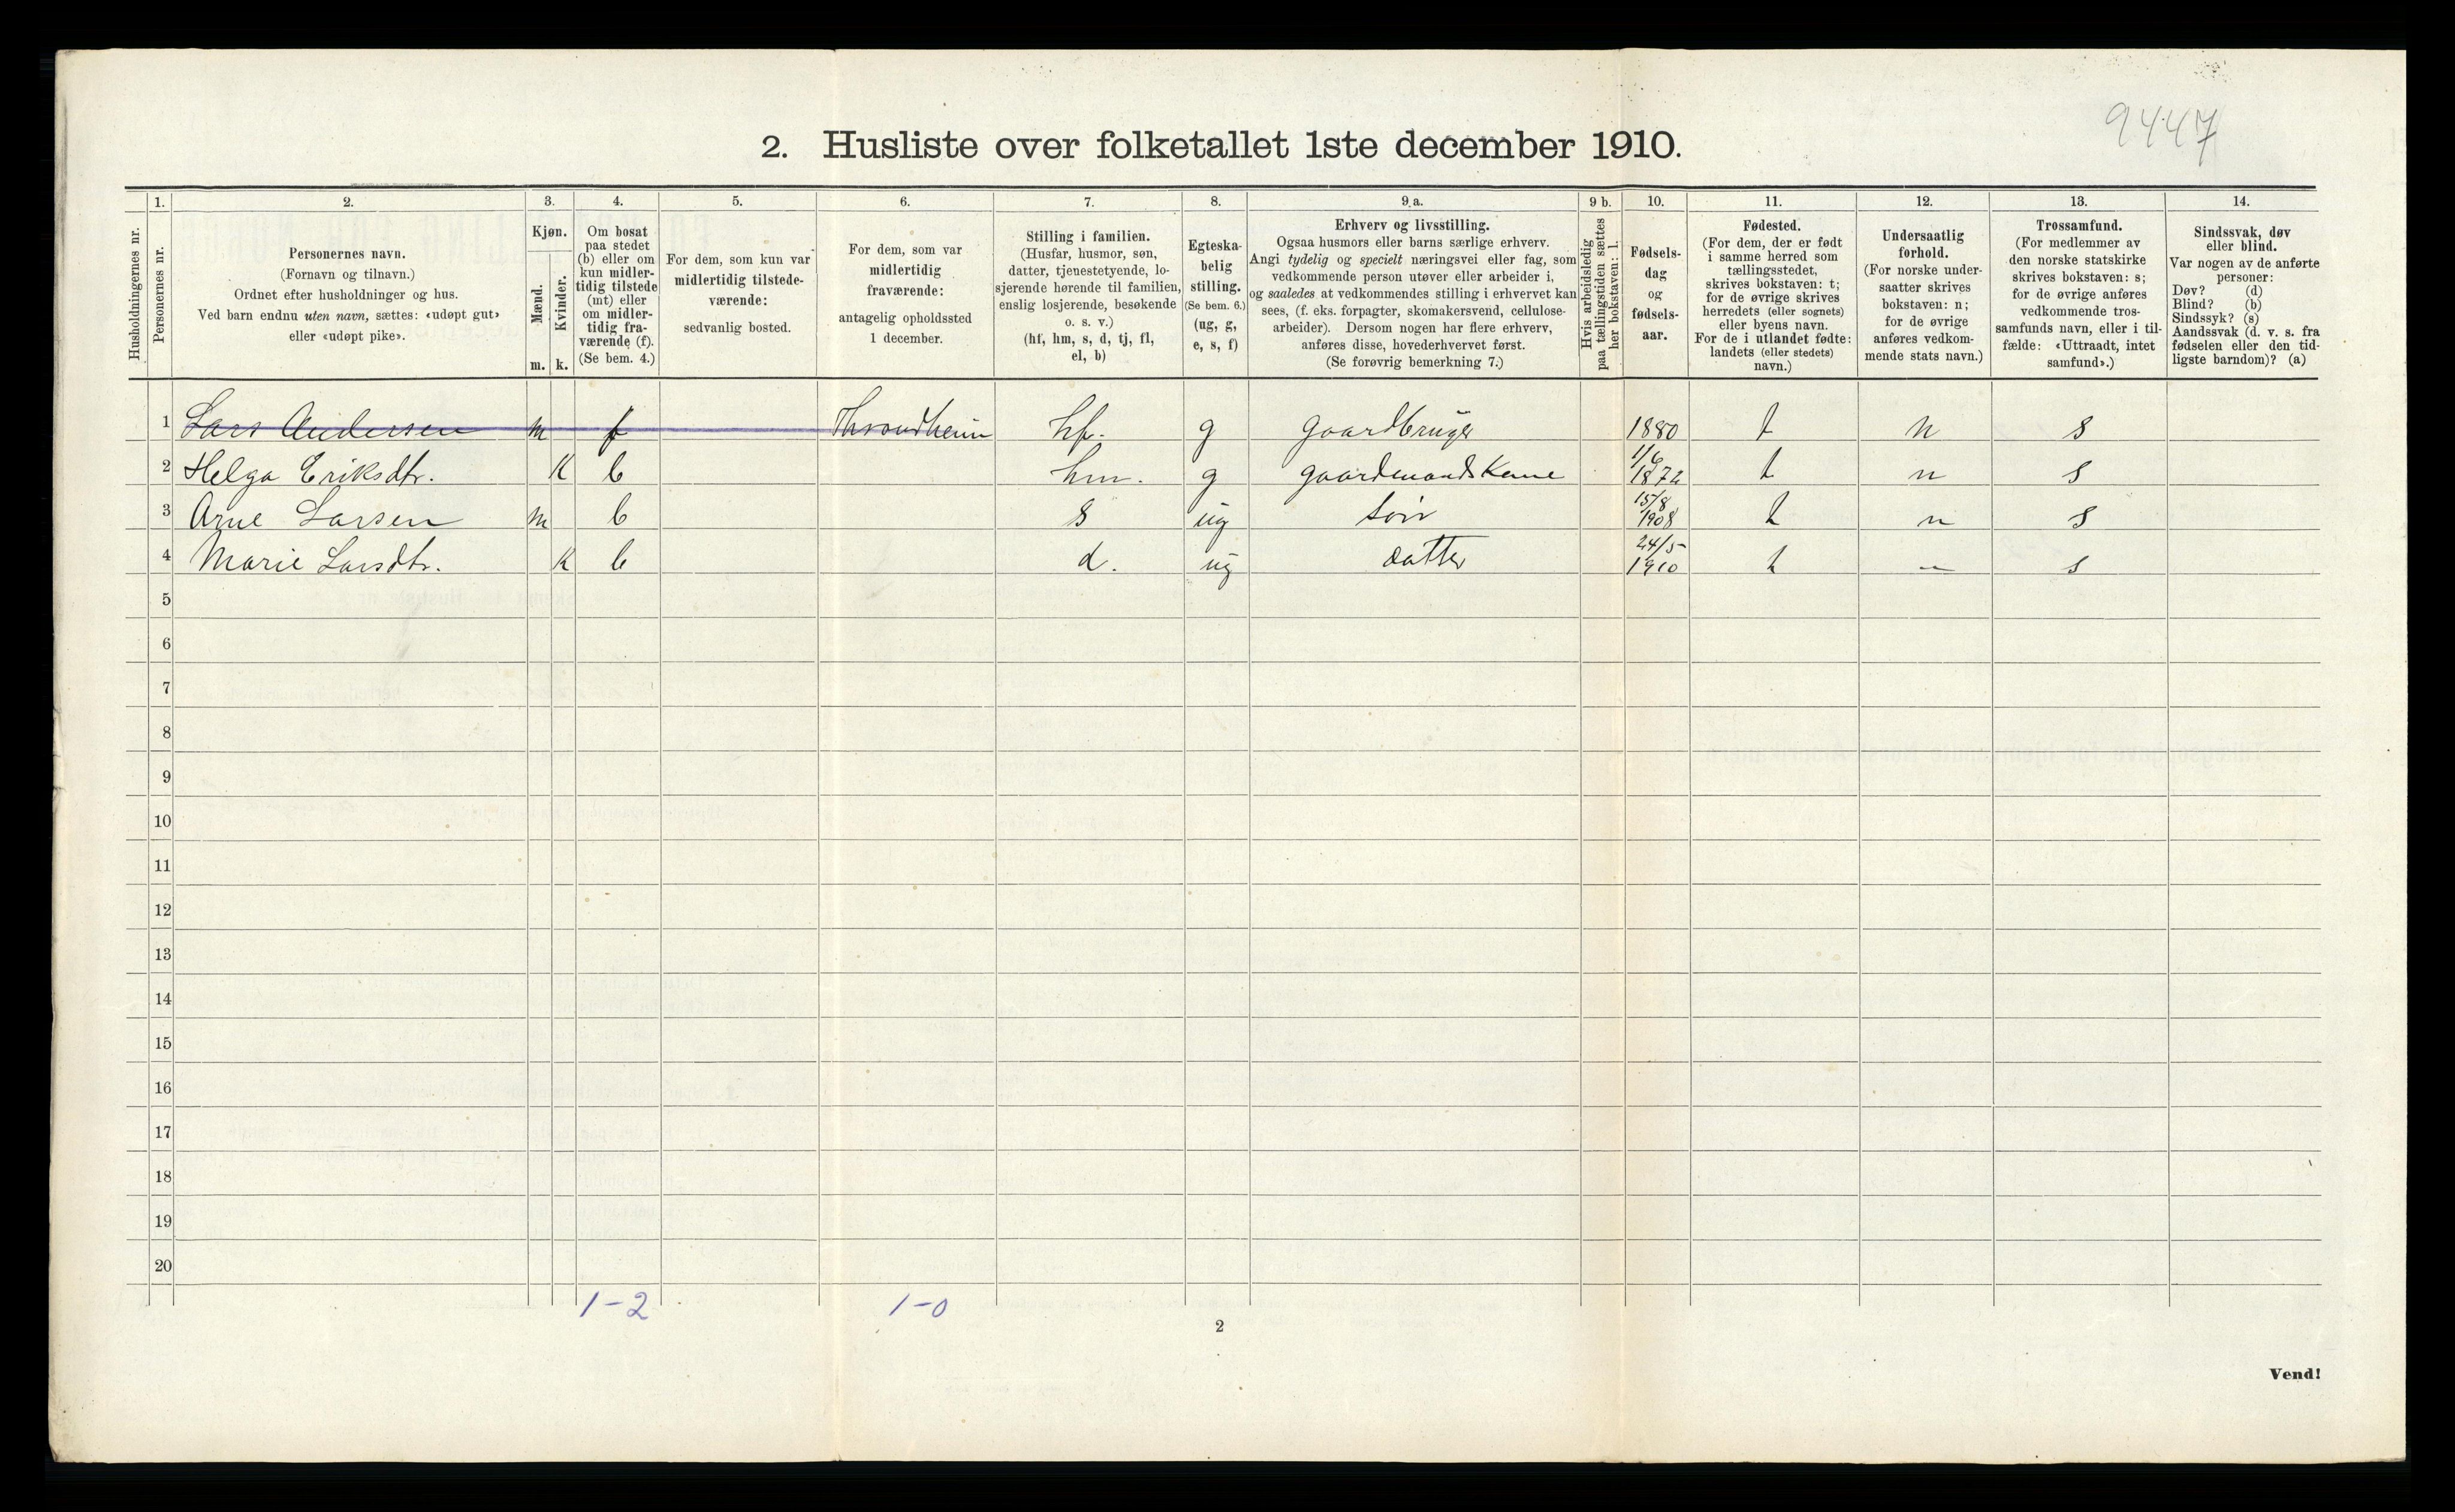 9447
2. Husliste over folketallet 1ste december 1910.
1. 2. 3. 4. 5. 6. 7. 8. 9 a. 9 b. 10. 11. 12. 13. 14.
Husholdningernes nr.
Personernes nr.
Personernes navn.
(Fornavn og tilnavn.)
Ordnet efter husholdninger og hus.
Ved barn endnu uten navn, sættes: «udøpt gut»
eller «udøpt pike».
Kjøn.
Mænd.
Kvinder.
m. k.
Om bosat
paa stedet
(b) eller om
kun midler-
tidig tilstede
(mt) eller
om midler-
tidig fra-
værende (f).
(Se bem. 4.)
For dem, som kun var
midlertidig tilstede-
værende:
sedvanlig bosted.
For dem, som var
midlertidig
fraværende:
antagelig opholdssted
1 december.
Stilling i familien.
(Husfar, husmor, søn,
datter, tjenestetyende, lo-
sjerende hørende til familien,
enslig losjerende, besøkende
o. s. v.)
(hf, hm, s, d, tj, fl,
el, b)
Egteska-
belig
stilling.
(Se bem. 6.)
(ug, g,
e, s, f)
Erhverv og livsstilling.
Ogsaa husmors eller barns særlige erhverv.
Angi tydelig og specielt næringsvei eller fag, som
vedkommende person utøver eller arbeider i,
og saaledes at vedkommendes stilling i erhvervet kan
sees, (f. eks. forpagter, skomakersvend, cellulose-
arbeider). Dersom nogen har flere erhverv,
anføres disse, hovederhvervet først.
(Se forøvrig bemerkning 7.)
Hvis arbeidsledig
paa tællingstiden sættes
her bokstaven: l.
Fødsels-
dag
og
fødsels-
aar.
Fødested.
(For dem, der er født
i samme herred som
tællingsstedet,
skrives bokstaven: t;
for de øvrige skrives
herredets (eller sognets)
eller byens navn.
For de i utlandet fødte:
landets (eller stedets)
navn.)
Undersaatlig
forhold.
(For norske under-
saatter skrives
bokstaven: n;
for de øvrige
anføres vedkom-
mende stats navn.)
Trossamfund.
(For medlemmer av
den norske statskirke
skrives bokstaven: s;
for de øvrige anføres
vedkommende tros-
samfunds navn, eller i til-
fælde: «Uttraadt, intet
samfund».)
Sindssvak, døv
eller blind.
Var nogen av de anførte
personer:
Døv? (d)
Blind? (b)
Sindssyk? (s)
Aandssvak (d. v. s. fra
fødselen eller den tid-
ligste barndom)? (a)
1 Lars Andersen m f Throndheim hf. g gaardbruger 1880 t n s
2 Helga Eriksdtr. K b hm. g gaardmandskone 1/6 1872 t n s
3 Arne Larsen m b s ug søn 15/8 1908 t n s
4 Marie Larsdtr. K b d. ug datter 24/5 1910 t — s
5
6
7
8
9
10
11
12
13
14
15
16
17
18
19
20
1-2 1-0
2
Vend!